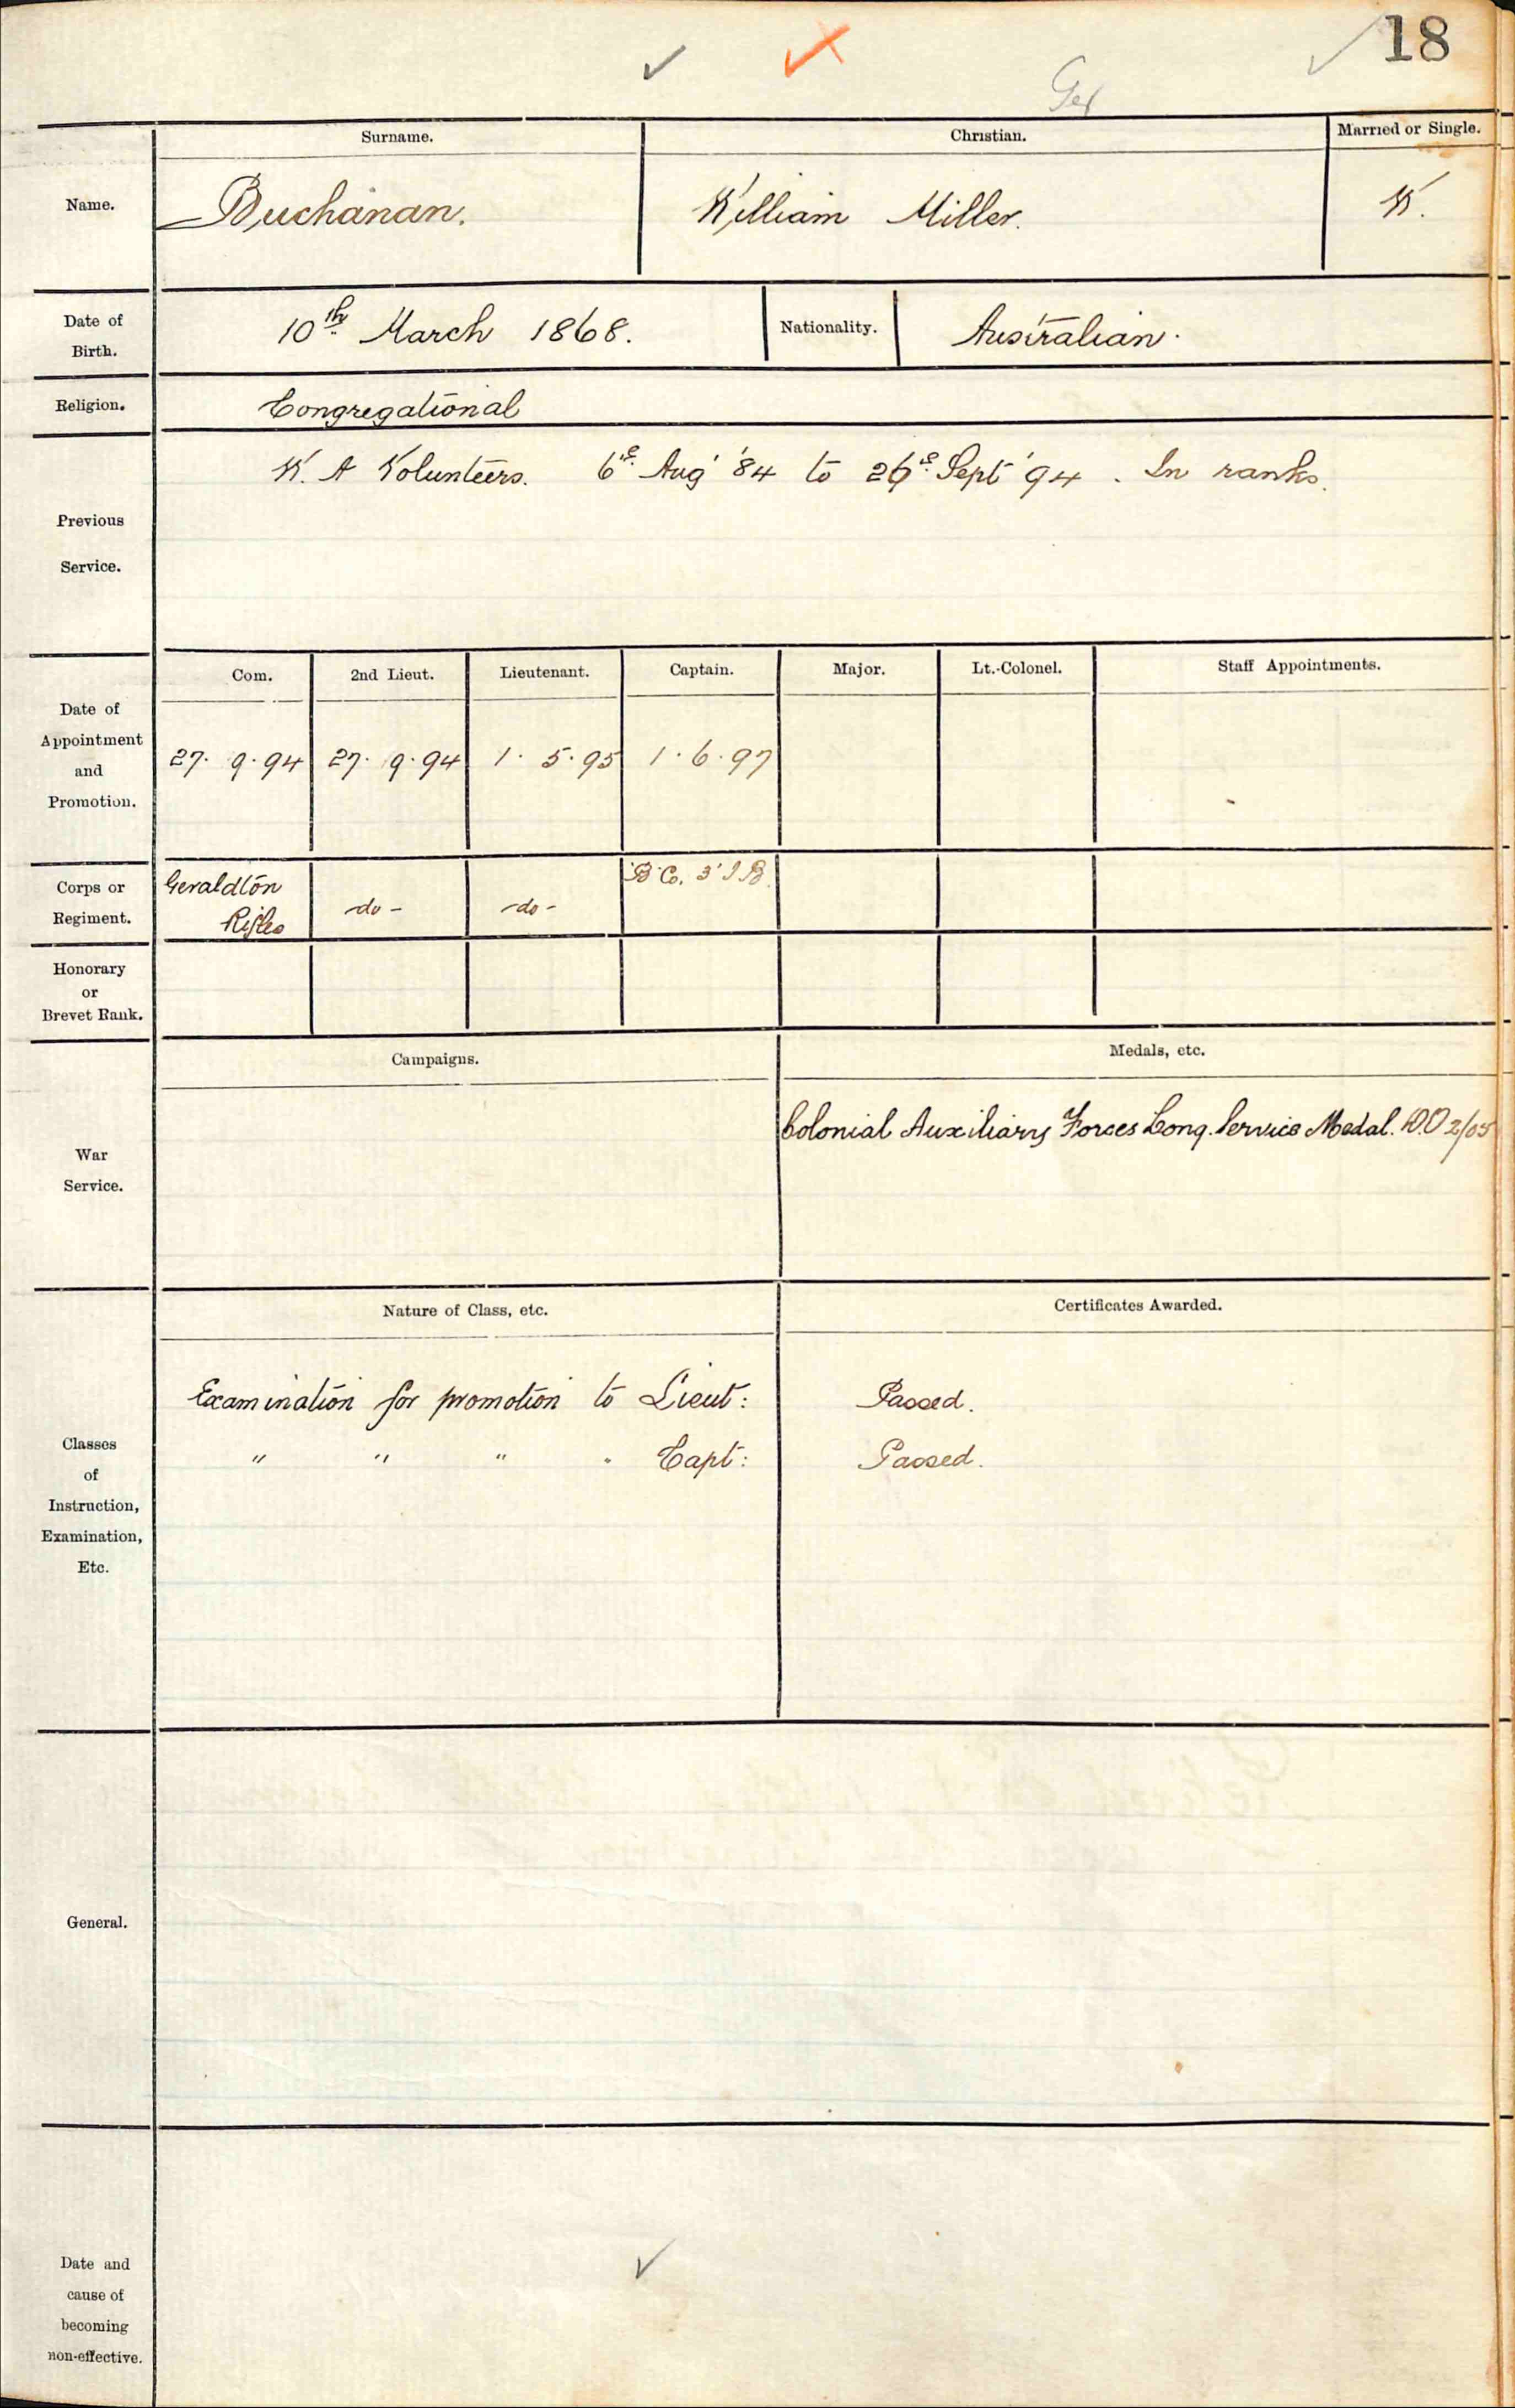 18
Gel
Surname.
Christian.
Married or Single.
Name.
Buchanan.
William Miller.
W.
Date of
Birth.
10th March 1868.
Nationality.
Australian.
Religion.
Congregational
W. A Volunteers. 6th Aug '84 to 26th Sept '94. In ranks.
Previous
Service.
Com.
2nd Lieut.
Lieutenant.
Captain.
Major.
Lt.-Colonel.
Staff Appointments.
Date of
Appointment
and
Promotion.
27. 9. 94
27. 9. 94
1. 5. 95
1. 6. 97
Corps or
Regiment.
Geraldton
Rifles
-do-
-do-
'B' Co. 3' I B.
Honorary
or
Brevet Rank.
Campaigns.
Medals, etc.
War
Service.
Colonial Auxiliary Forces Long. Service Medal. D.O 2/05
Nature of Class, etc.
Certificates Awarded.
Classes
of
Instruction,
Examination,
Etc.
Examination for promotion to Lieut:
Passed.
" " " " Capt:
Passed.
General.
Date and
cause of
becoming
non-effective.